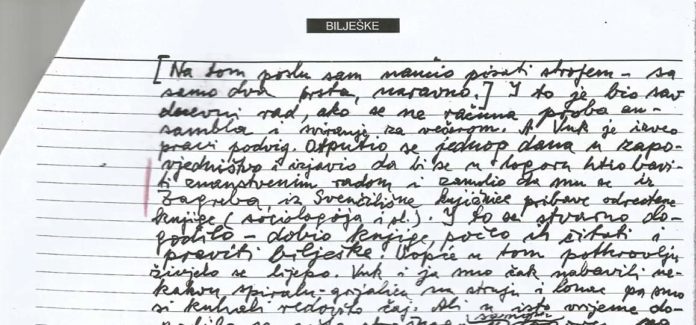 BILJEŠKE
[Na tom poslu sam naučio pisati strojem – sa
samo dva prsta, naravno.] I to je bio sav
dnevni rad, ako se ne računa proba an-
sambla i sviranje za večerom. A Vuk je izveo
pravi podvig. Otputio se jednog dana u zapo-
vjedništvo i izjavio da bi se u logoru htio bavi-
ti znanstvenim radom i zamolio da mu se iz
Zagreba, iz Sveučilišne knjižnice pribave određene
knjige (sociologija i sl.). I to se stvarno do-
godilo – dobio knjige, počeo ih čitati i
praviti bilješke. Uopće u tom potkrovlju
živjelo se lijepo. Vuk i ja smo čak nabavili ne-
kakvu spiralu-grijalicu na struju i lonac pa smo
si kuhali redovito čaj. Ali u isto vrijeme do-